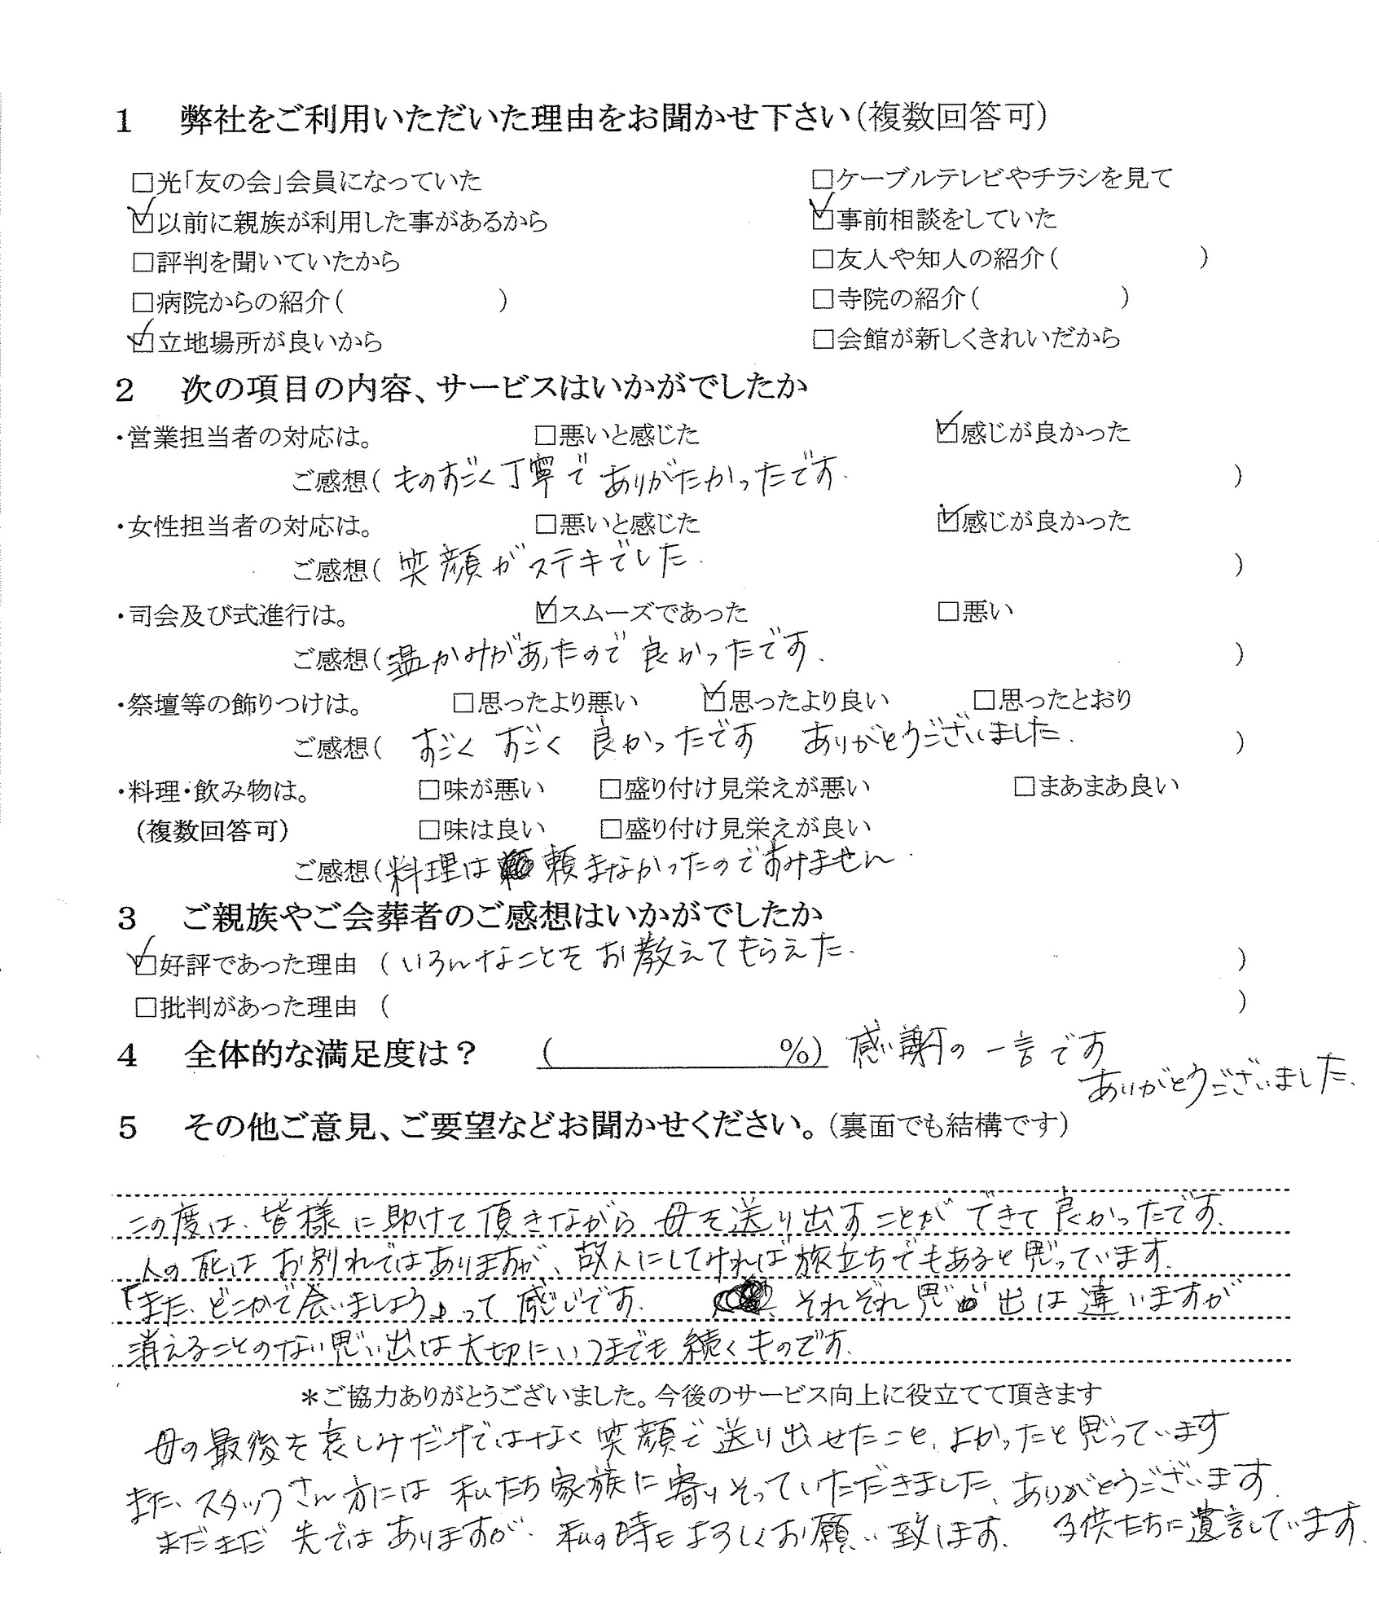 1 弊社をご利用いただいた理由をお聞かせ下さい(複数回答可)
□光「友の会」会員になっていた □ケーブルテレビやチラシを見て
☑以前に親族が利用した事があるから ☑事前相談をしていた
□評判を聞いていたから □友人や知人の紹介( )
□病院からの紹介( ) □寺院の紹介( )
☑立地場所が良いから □会館が新しくきれいだから
2 次の項目の内容、サービスはいかがでしたか
・営業担当者の対応は。 □悪いと感じた ☑感じが良かった
ご感想(ものすごく丁寧でありがたかったです. )
・女性担当者の対応は。 □悪いと感じた ☑感じが良かった
ご感想(笑顔がステキでした. )
・司会及び式進行は。 ☑スムーズであった □悪い
ご感想(温かみがあったので良かったです. )
・祭壇等の飾りつけは。 □思ったより悪い ☑思ったより良い □思ったとおり
ご感想( すごく すごく 良かったです ありがとうございました. )
・料理・飲み物は。 □味が悪い □盛り付け見栄えが悪い □まあまあ良い
(複数回答可) □味は良い □盛り付け見栄えが良い
ご感想(料理は 頼まなかったのですみません.
3 ご親族やご会葬者のご感想はいかがでしたか
☑好評であった理由 (いろんなことをお教えてもらえた. )
□批判があった理由 ( )
4 全体的な満足度は? ( %) 感謝の一言です
ありがとうございました.
5 その他ご意見、ご要望などお聞かせください。(裏面でも結構です)
この度は、皆様に助けて頂きながら母を送り出すことができて良かったです.
人の死はお別れではありますが、故人にしてければ旅立ちでもあると思っています.
「また、どこかで会いましょう」って感じです. それぞれ思い出は違いますが
消えることのない思い出は大切にいつまでも続くものです.
*ご協力ありがとうございました。今後のサービス向上に役立てて頂きます
母の最後を哀しみだけではなく笑顔で送り出せたこと、よかったと思っています
また、スタッフさん方には私たち家族に寄りそっていただきました、ありがとうございます.
まだまだ 先ではありますが、私の時もよろしくお願い致します. 子供たちに遺言しています.